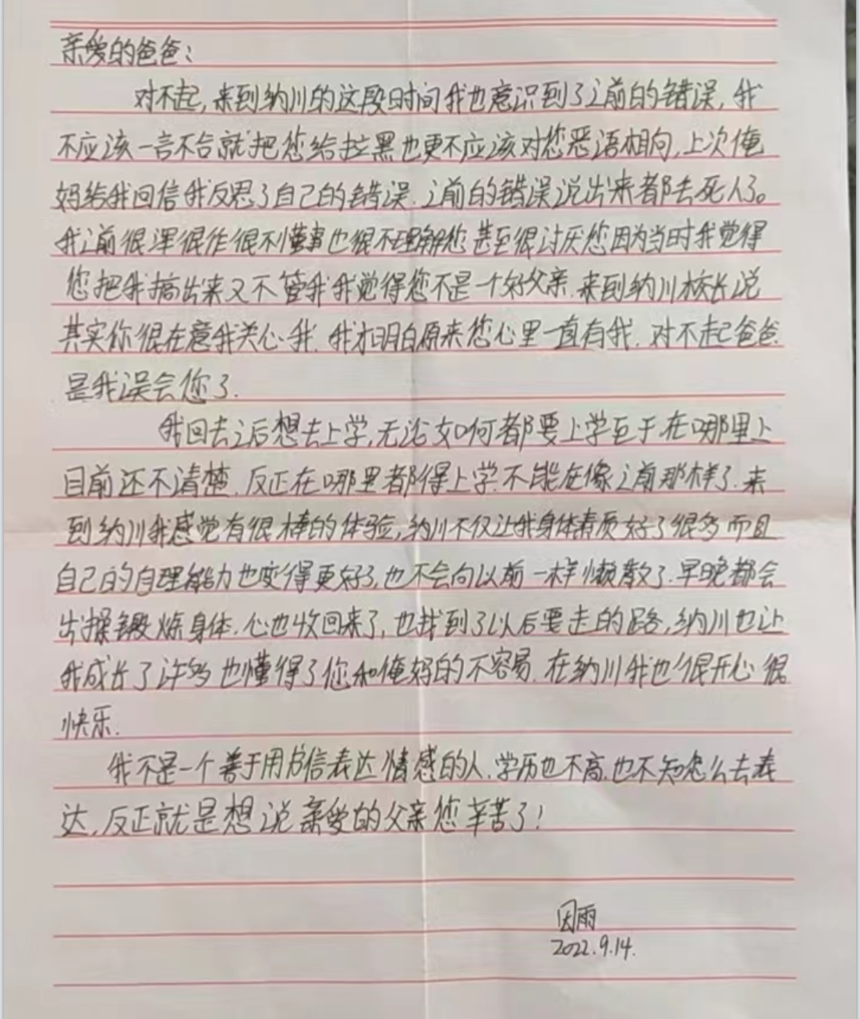 亲爱的爸爸：
对不起，来到纳川的这段时间我也意识到了之前的错误，我
不应该一言不合就把您给拉黑也更不应该对您恶语相向，上次俺
妈给我回信我反思了自己的错误.之前的错误说出来都丢死人了。
我之前很浑很作很不懂事也很不理解您甚至很讨厌您因为当时我觉得
您把我搞出来又不管我我觉得您不是一个好父亲.来到纳川校长说
其实你很在意我关心我.我才明白原来您心里一直有我.对不起爸爸
是我误会您了.
我回去之后想去上学,无论如何都要上学至于在哪里上
目前还不清楚.反正在哪里都得上学.不能在像之前那样了.来
到纳川我感觉有很棒的体验,纳川不仅让我身体素质好了很多而且
自己的自理能力也变得更好了,也不会向以前一样懒散了.早晚都会
出操锻炼身体.心也收回来了,也找到了以后要走的路,纳川也让
我成长了许多也懂得了你和俺妈的不容易.在纳川我也很开心很
快乐.
我不是一个善于用书信表达情感的人.学历也不高.也不知怎么去表
达,反正就是想说亲爱的父亲您辛苦了!
因雨
2022.9.14.